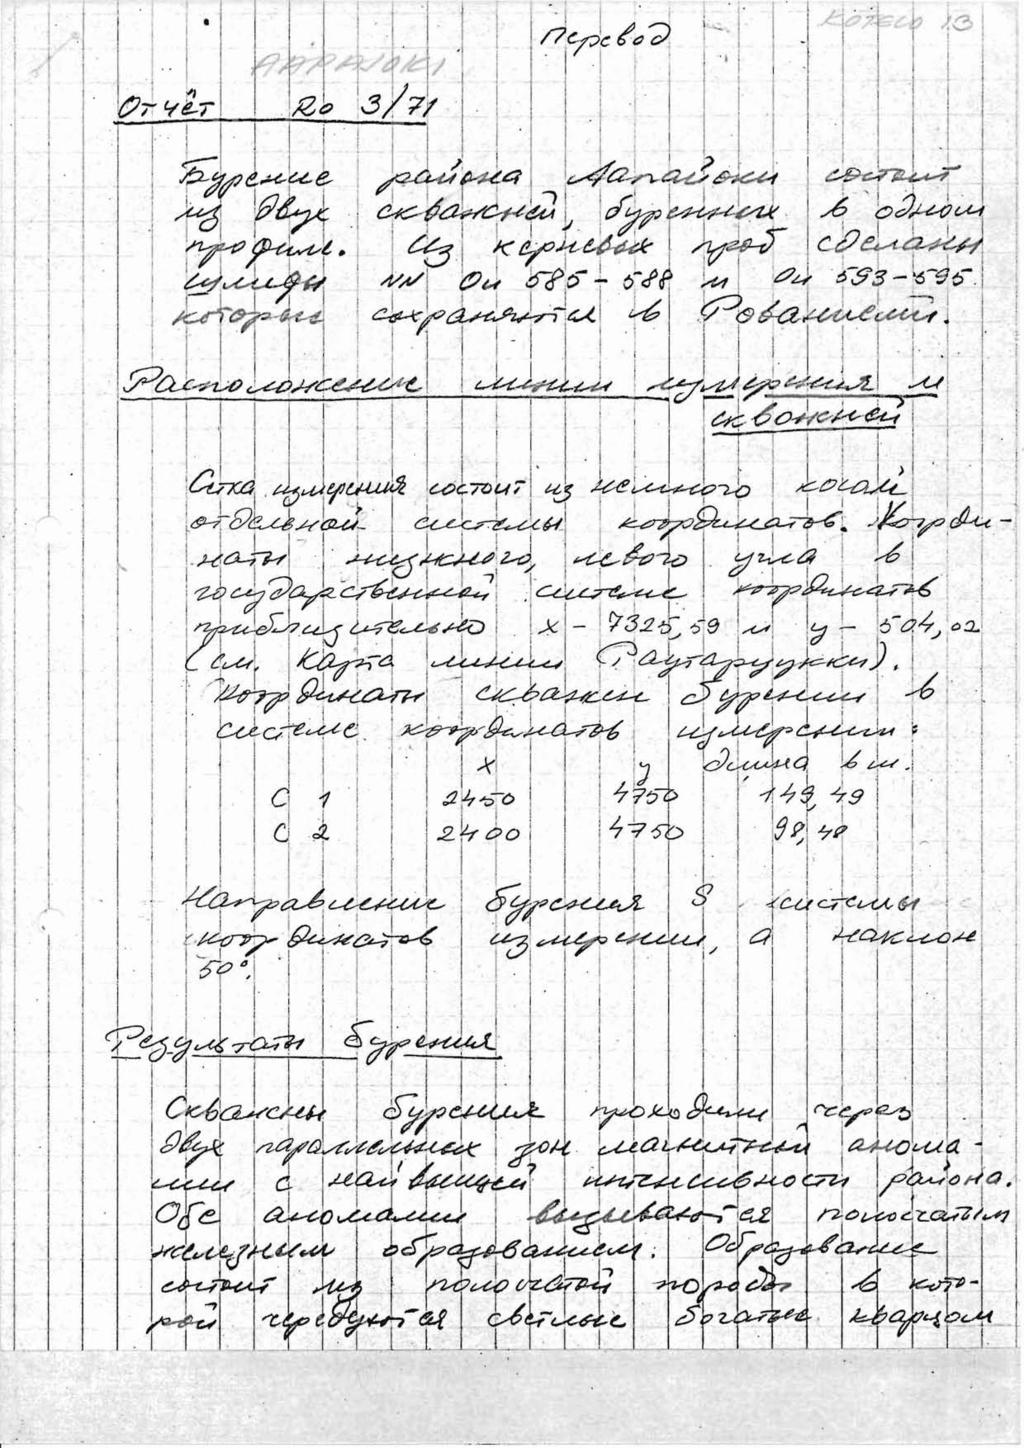 КОТЕLO 13
Перевод
AAPAJOKI
Отчёт Ro 3/71
Бурение района Аапайоки состоит
из двух скважней, буренных в одном
профиле. Из керневых проб сделаны
шлифы NN Ou 585-588 и Ou 593-595
которые сохраняются в Рованиеми.
Расположение линии измерения и
скважней
Сетка измерения состоит из немного косой
отдельной системы координатов. Коорди-
наты нижнего, левого угла в
государственной системе координатов
приблизительно x - 7325,59 и y - 504,02
(см. Карта линии (Раутаруукки).
Координаты скважен бурении в
системе координатов измерении:
x y длина в м.
С 1 2450 4750 149,49
С 2 2400 4750 98,48
Направление бурения S системы
координатов измерении, а наклон
50°.
Результаты бурения
Скважены бурения проходили через
двух параллельных зон магнитной анома-
лии с найвысшей интенсивности района.
Обе аномалии вызываются полосчатым
железным образованием. Образование
состоит из полосчатой породы в кото-
рой чередуются светлые богатые кварцом